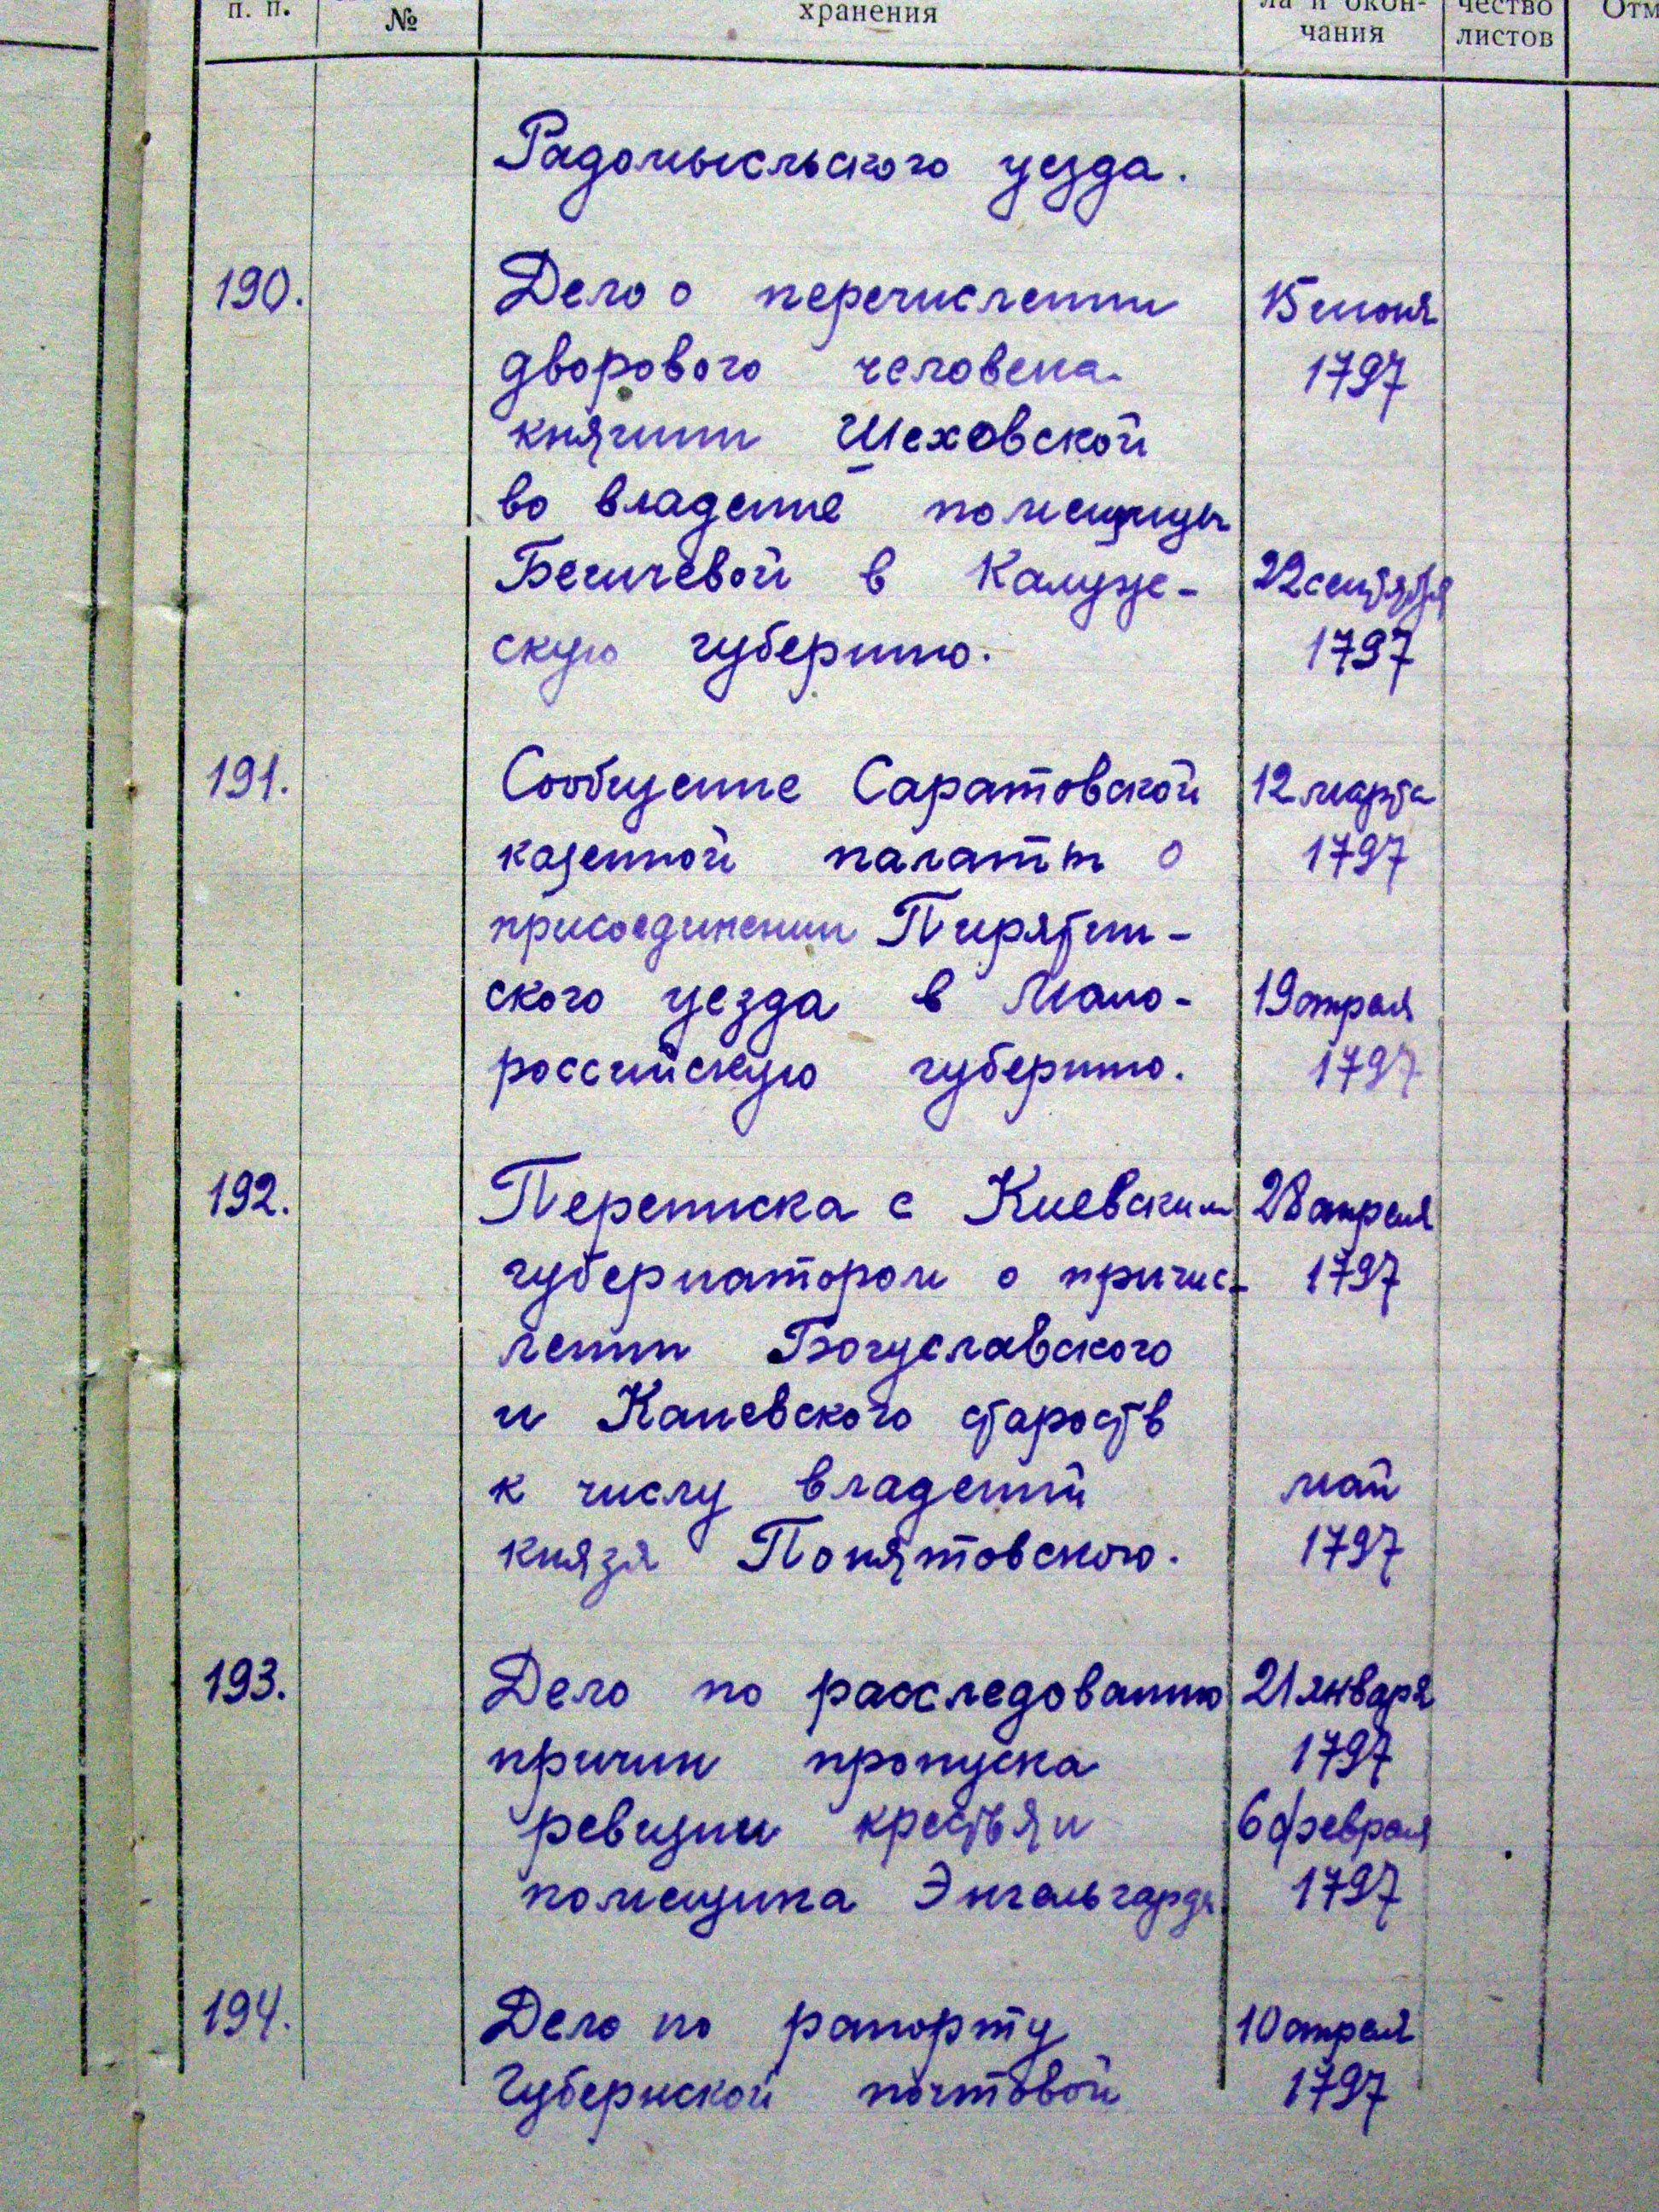 п. п.
№
хранения
ла и окон-
чания
чество
листов
Отм
Радомысльского уезда.
190.
Дело о перечислении
дворового человека
княгини Шеховской
во владение помещицы
Бегичевой в Калуж-
скую губернию.
15 июня
1797
22 сентября
1797
191.
Сообщение Саратовской
казенной палаты о
присоединении Пирятин-
ского уезда в Мало-
российскую губернию.
12 марта
1797
19 апреля
1797
192.
Переписка с Киевским
губернатором о причис-
лении Богуславского
и Каневского староств
к числу владений
князя Понятовского.
28 апреля
1797
май
1797
193.
Дело по расследованию
причин пропуска
ревизии крестьян
помещика Энгельгарда.
21 января
1797
6 февраля
1797
194.
Дело по рапорту
Губернской почтовой
10 апреля
1797